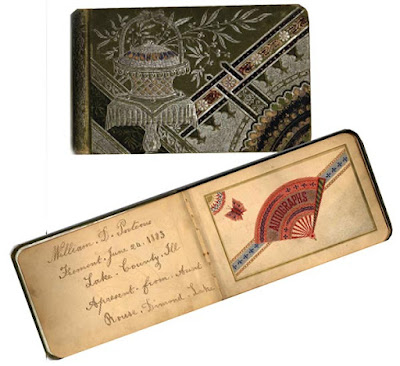 William. D. Porteous
Fremont. June 20. 1883
Lake. County. Ill
Apresent. from. Aunt
Rouse. Dimond. Lake
AUTOGRAPHS